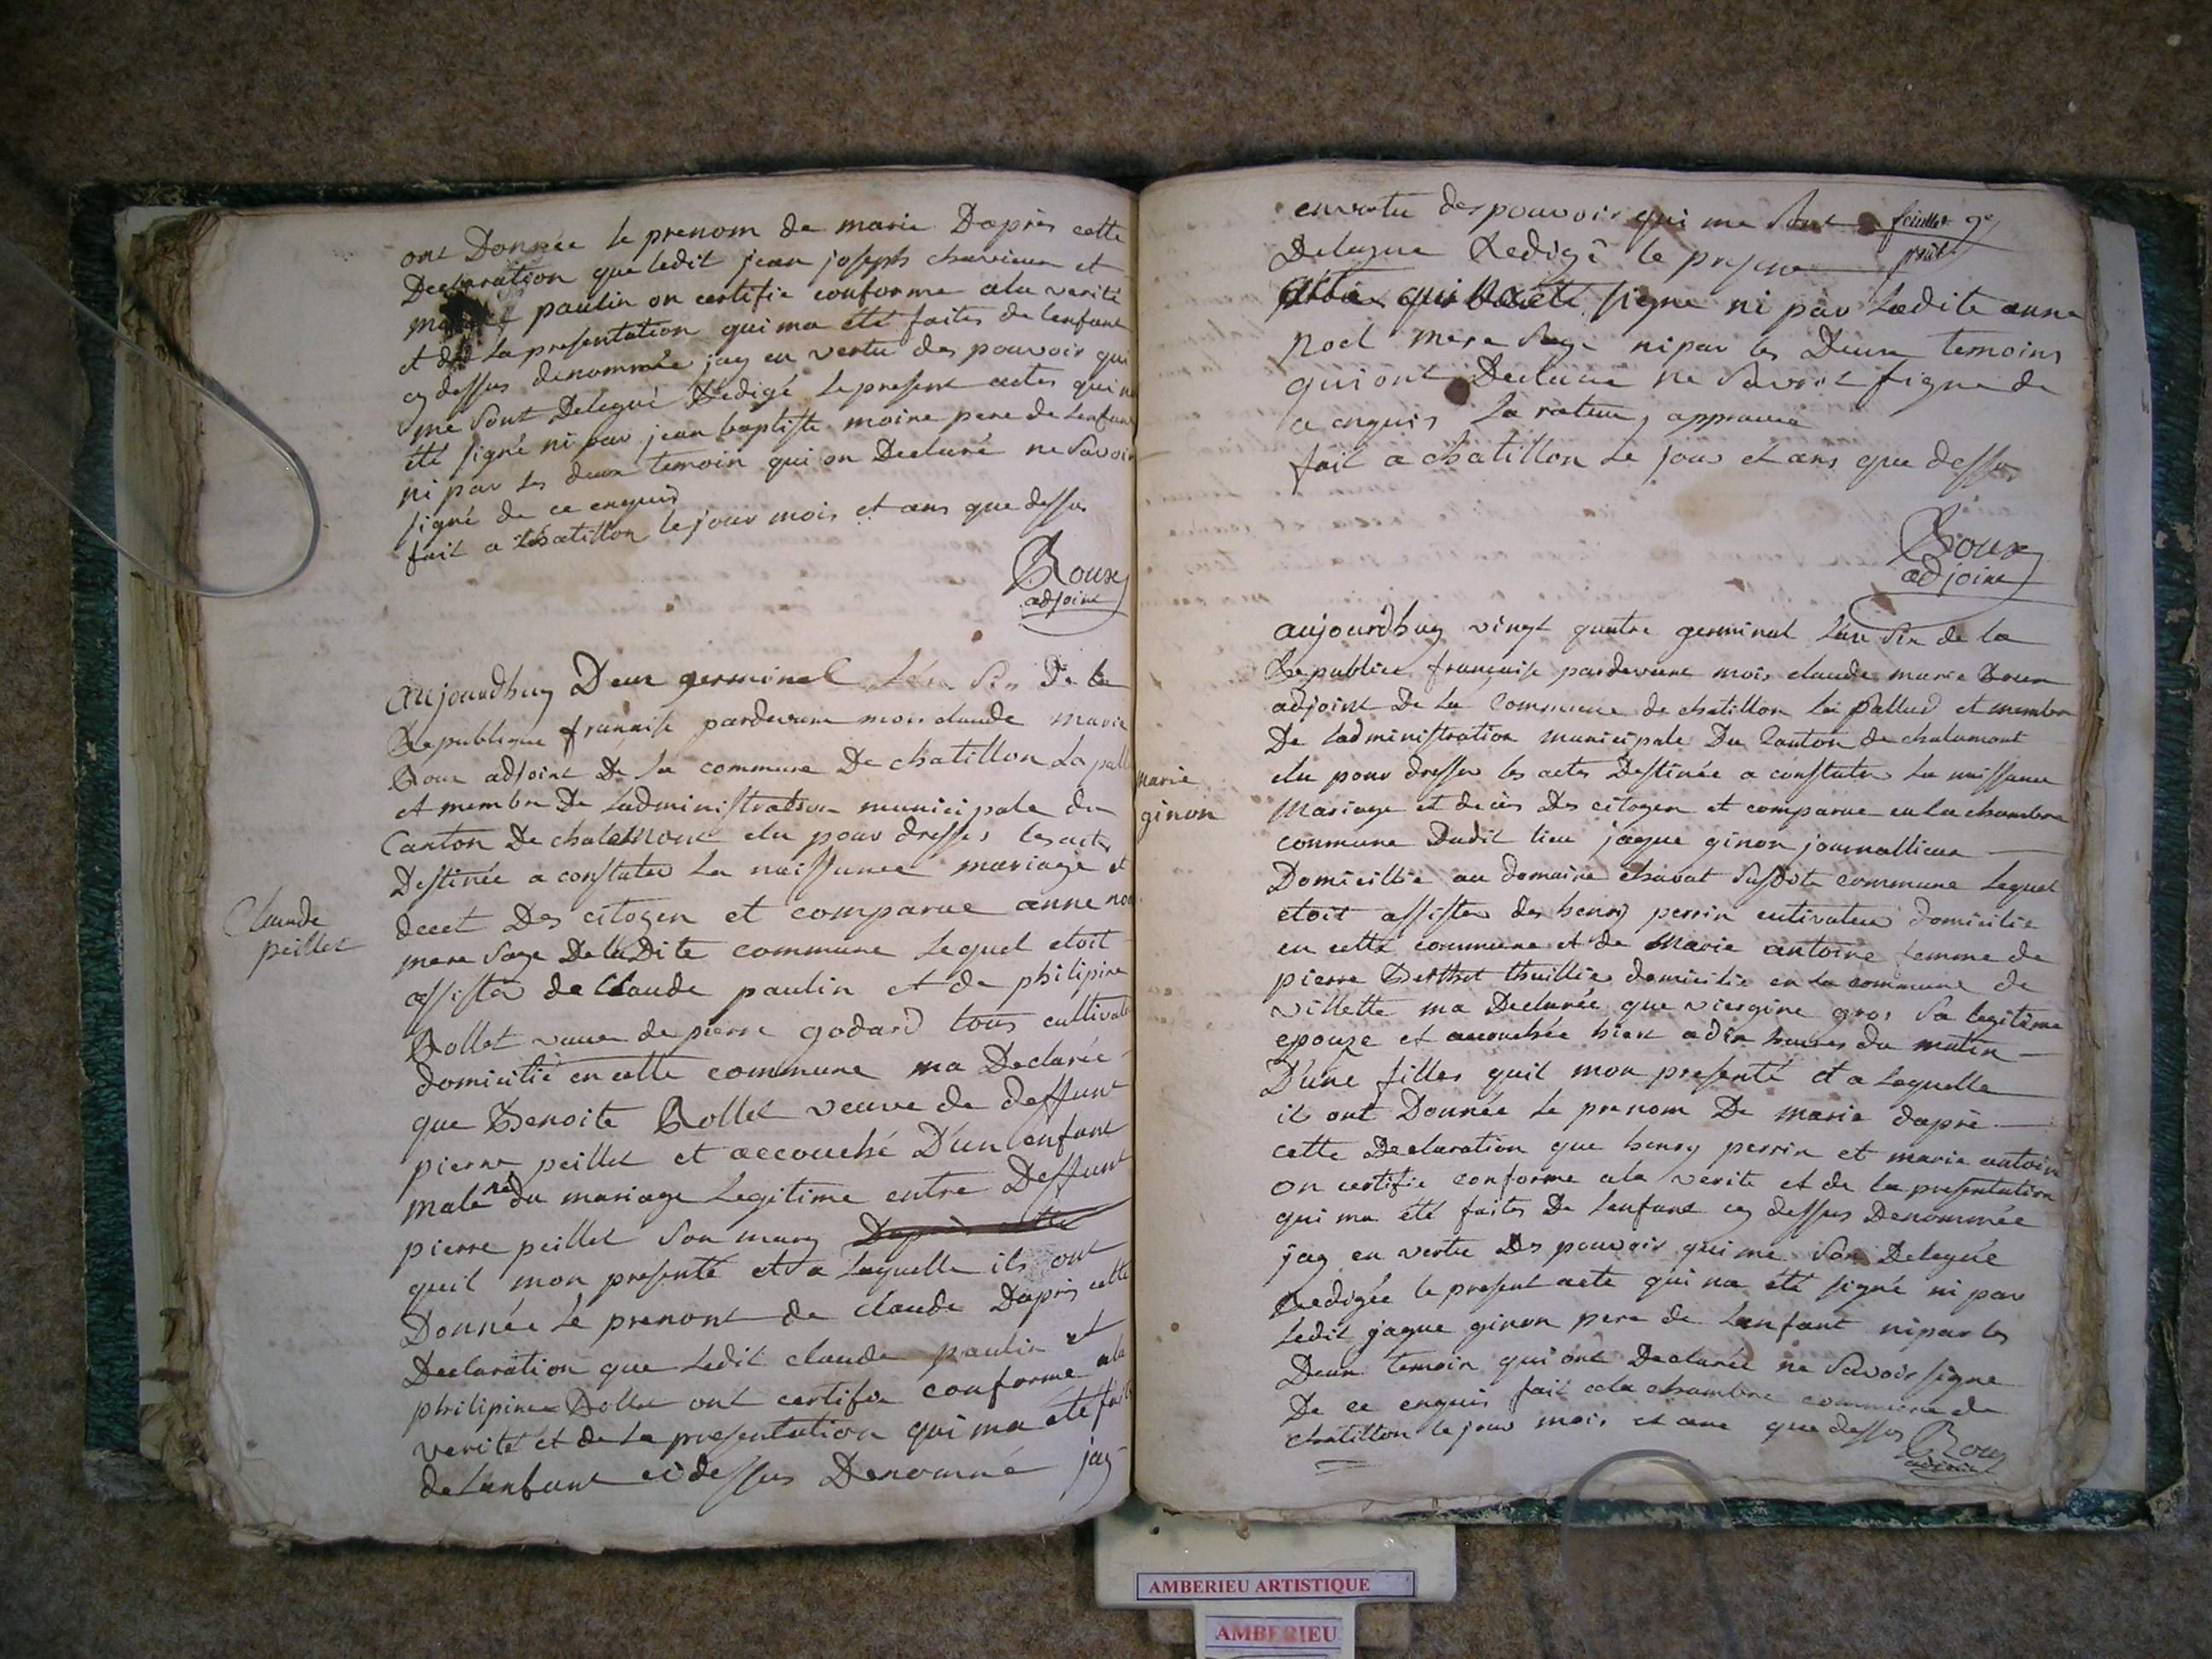 ont Donnée le prenom de marie Daprès cette
Declaration que ledit jean joseph et
paulin on certifie conforme ala verité
et de la presentation qui ma été faites de lenfant
cy dessus denommée jay en vertu des pouvoir qui
me sont Delegué Redigé le present actes qui na
été signé ni par jean baptiste moine pere de lenfant
ni par les deux temoin qui on Declaré ne savoir
signé de ce enquis
fait a Chatillon le jour mois et ans que dessus
Roux
adjoint
aujourdhuy Deux germinal Lan Six De la
Republique franaise pardevant moi claude marie
Roux adjoint De la commune De chatillon la pall
et membre De Ladministration municipale du
Canton De chalamont elu pour dresses les actes
Destinée a constater La naissance mariage et
decet Des citoyen et comparue anne noel
mere sage De laDite commune Lequel etoit
assister de Claude paulin et de philipine
Rollet veuve de pierre godard tous cultivateur
domicilié en cette commune ma Declarée
que Benoite Rollet veuve de deffunt
pierre peillet et accouché D'un enfant
male né du mariage Legitime entre Deffunt
pierre peillet son mary Daprès cette
quil mon presenté et a Laquelle ils ont
Donnée Le prenont de claude Daprès cette
Declaration que Ledit claude paulin et
philipine Rollet ont certifie conforme ala
verité et de La presentation qui ma été faite
de Lenfant ci dessus Denommé jay
Claude
peillet
en vertu des pouvoir qui me sont
feuillet 9e
Delegue Redigé le present
actes qui na été signe ni par Ladite anne
noel mere sage ni par les Deux temoins
qui ont Declaré ne savoir signe de
ce enquis La rature approuvé
fait a chatillon le jour et ans que dessus
Roux
adjoint
aujourdhuy vingt quatre germinal Lan Six de la
Republice française pardevant mois claude marie Roux
adjoint De La Commune de chatillon La Pallud et membre
De Ladministration municipale Du Canton de chalamont
elu pour dresser les actes Destinée a constater La naissance
Mariage et decès Des citoyen et comparue en la chambre
commune Dudit lieu jaque ginon journallieur
Domicillié au domaine chavat susdite commune Lequel
etoit assister des henry perrin cutivateur domicilié
en cette commune et de Marie antoine femme de
pierre Berthet thuillier domicilié en la commune de
villette ma Declarée que viergine gros sa legitime
epouze et accouchée hier a dix heures du matin
D'une filles quil mon presenté et a laquelle
il ont Donnée Le prenom De marie daprè
cette Declaration que henry perrin et marie antoine
on certifie conforme ala verite et de la presentation
qui ma été faites De Lenfant cy dessus Denommée
jay en vertu Des pouvoir qui me son Delegué
Redigée le present acte qui na été signé ni par
Ledit jaque ginon pere de Lenfant ni par les
Deux temoin qui ont Declarée ne savoir signe
De ce enquis fait ala chambre commune de
chatillon le jour mois et ans que dessus
Roux
adjoint
marie
ginon
AMBERIEU ARTISTIQUE
AMBERIEU